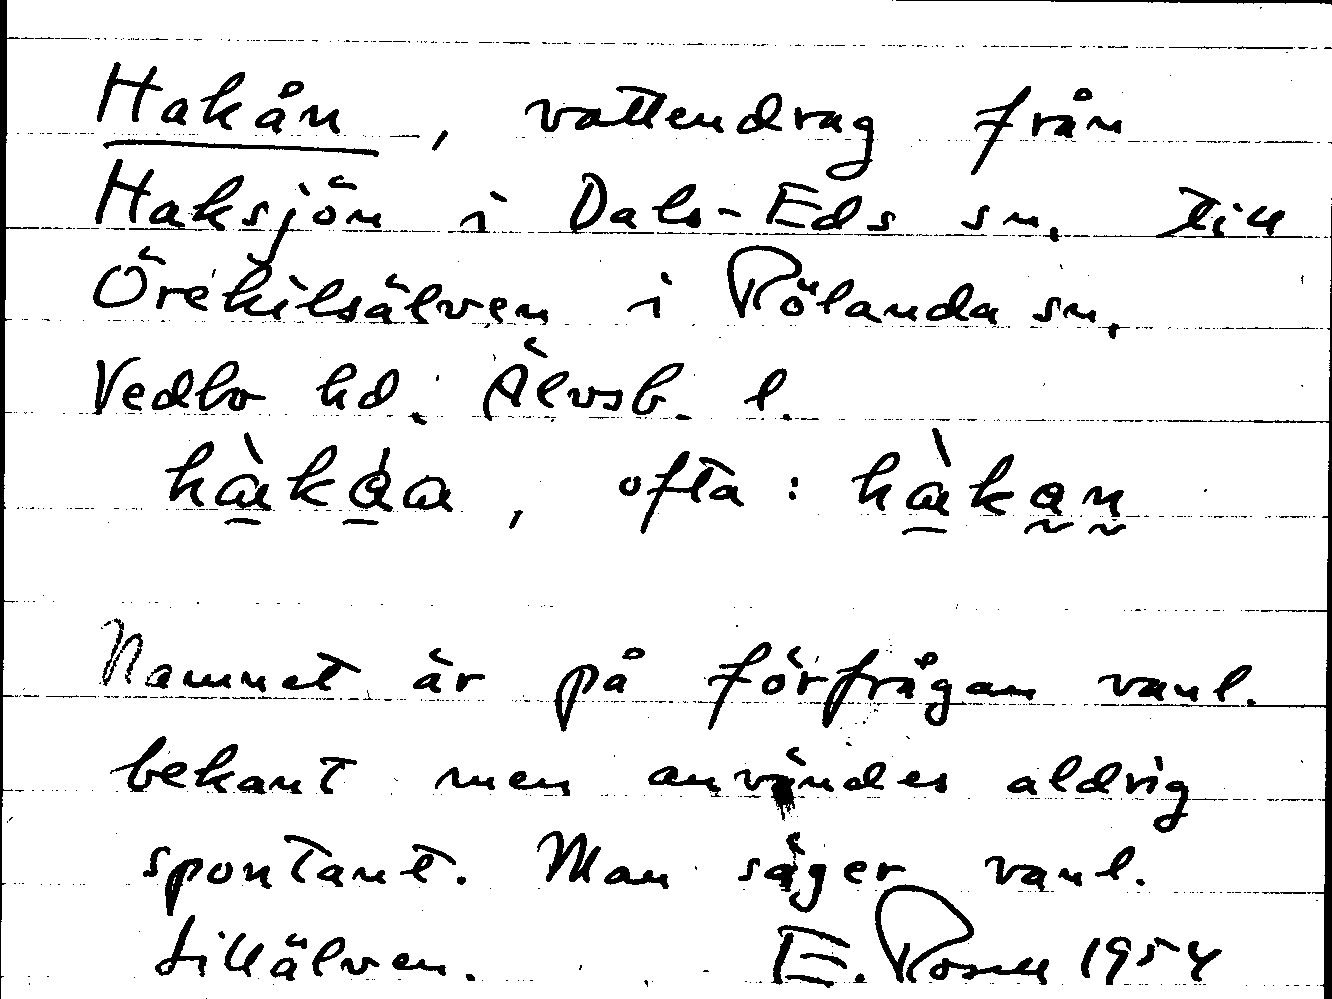 Hakån, vattendrag från
Haksjön i Dals-Eds sn, till
Örekilsälven i Rölanda sn,
Vedbo hd. Älvsb. l.
hàkåa, ofta: hàkan
Namnet är på förfrågan vanl.
bekant men användes aldrig
spontant. Man säger vanl.
lillälven. E. Rosell 1954